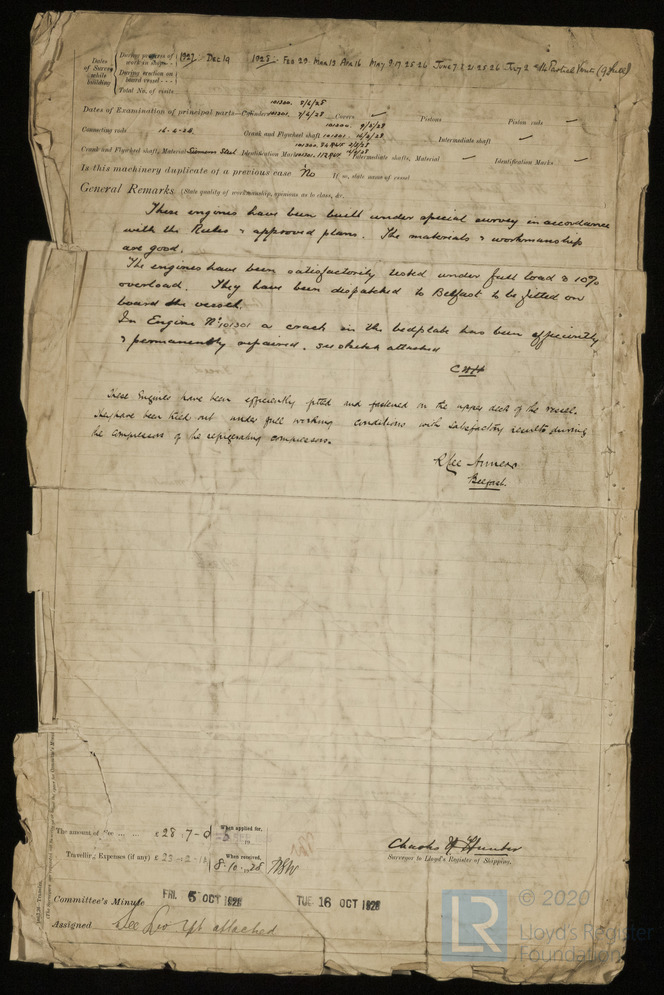 Dates of Survey while building
During progress of work in shops - - 1927 Dec 19 1928. Feb 29. Mar 13 Apr 16 May 8. 17. 25. 26 June 7. 8. 21. 25. 26 July 2
During erection on board vessel - - -
Total No. of visits
101300. 7/6/28
Dates of Examination of principal parts—Cylinders 101301. 7/6/28 Covers ✓ Pistons ✓ Piston rods ✓
Connecting rods 16-4-28. Crank and Flywheel shaft 101301. Intermediate shaft ✓
Crank and Flywheel shaft, Material Siemens Steel Identification Mark Intermediate shafts, Material ✓ Identification Marks ✓
Is this machinery duplicate of a previous case No If so, state name of vessel
General Remarks (State quality of workmanship, opinions as to class, &c.
These engines have been built under special survey in accordance
with the Rules & approved plans. The materials & workmanship
are good.
The engines have been satisfactorily tested under full load & 10%
overload. They have been dispatched to Belfast to be fitted on
board the vessel.
In Engine No 101301 a crack in the bedplate has been efficiently
& permanently repaired. See sketch attached
CWH
These Engines have been efficiently fitted and fastened on the upper deck of the vessel.
They have been tried out under full working conditions with satisfactory results during
the of the refrigerating compressors.
R Lee
Belfast.
The amount of Fee ... ... £ 28 - 7 - 0 When applied for,
Travelling Expenses (if any) £ When received, 8. 10. 28
Charles W Hunter
Surveyor to Lloyd's Register of Shipping.
Committee's Minute FRI. 5 OCT 1928 TUE 16 OCT 1928
Assigned See attached
LR © 2020
Lloyd's Register
Foundation